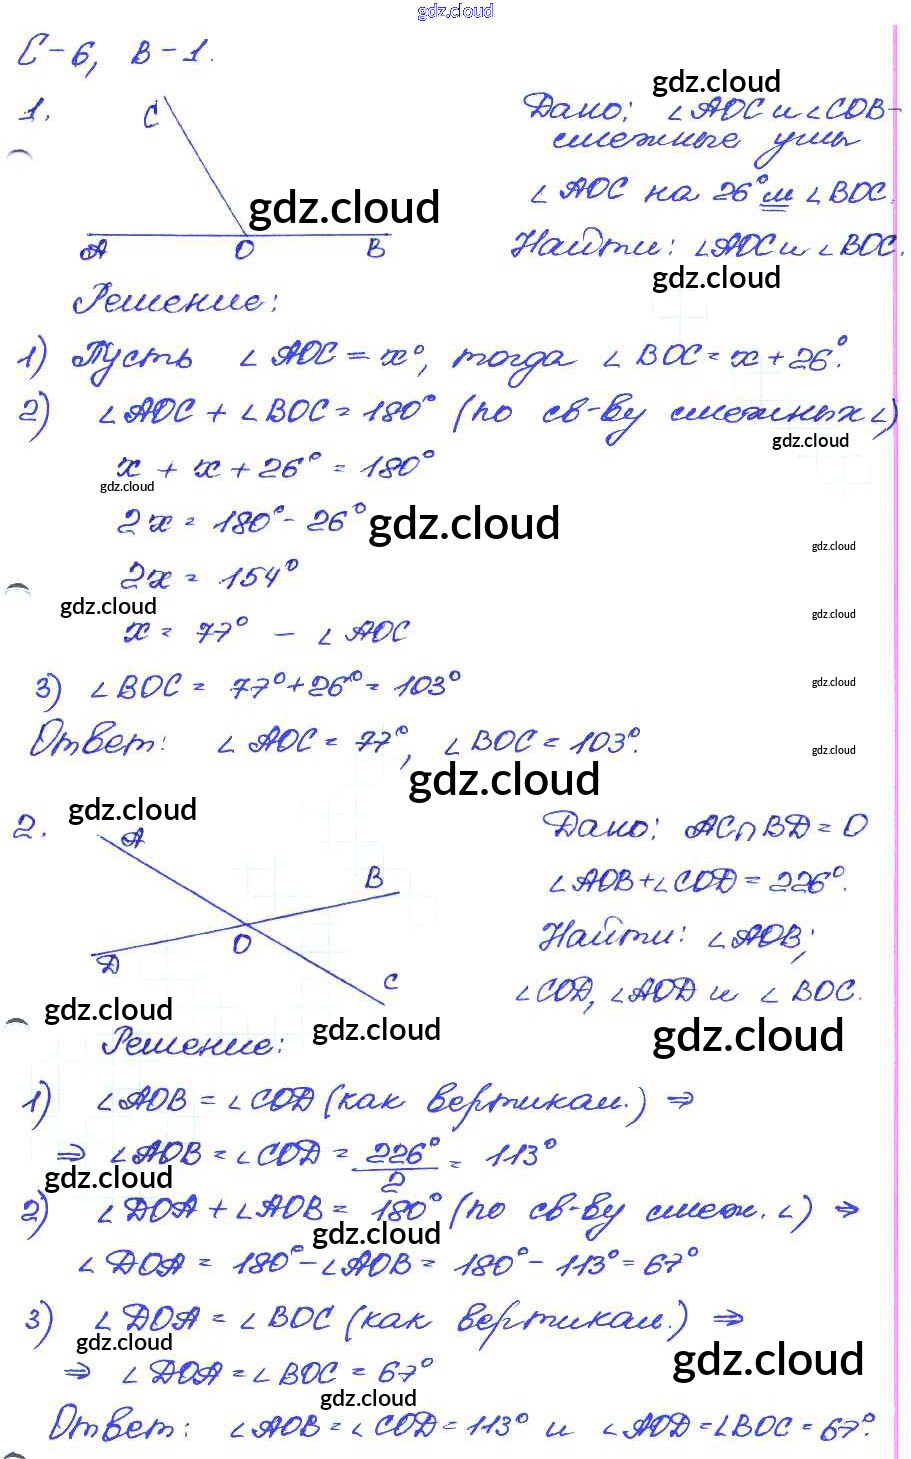 gdz.cloud
С-6, В-1.
gdz.cloud
1.
C
A O B
gdz.cloud
Дано: ∠AOC и ∠COB-
смежные углы
∠AOC на 26° м ∠BOC.
Найти: ∠AOC и ∠BOC.
gdz.cloud
Решение:
1) Пусть ∠AOC = x°, тогда ∠BOC = x + 26°.
2) ∠AOC + ∠BOC = 180° (по св-ву смежных ∠)
gdz.cloud
x + x + 26° = 180°
gdz.cloud
2x = 180° - 26°
gdz.cloud
gdz.cloud
2x = 154°
gdz.cloud
gdz.cloud
x = 77° — ∠AOC
3) ∠BOC = 77° + 26° = 103°
gdz.cloud
Ответ: ∠AOC = 77°, ∠BOC = 103°.
gdz.cloud
gdz.cloud
gdz.cloud
2.
A
B
O
D
C
Дано: AC∩BD = O
∠AOB + ∠COD = 226°.
Найти: ∠AOB;
∠COD, ∠AOD и ∠BOC.
gdz.cloud
gdz.cloud
gdz.cloud
Решение:
1) ∠AOB = ∠COD (как вертикал.) ⇒
⇒ ∠AOB = ∠COD = 226°/2 = 113°
gdz.cloud
2) ∠DOA + ∠AOB = 180° (по св-ву смеж. ∠) ⇒
gdz.cloud
∠DOA = 180° - ∠AOB = 180° - 113° = 67°
3) ∠DOA = ∠BOC (как вертикал.) ⇒
gdz.cloud
gdz.cloud
⇒ ∠DOA = ∠BOC = 67°
gdz.cloud
Ответ: ∠AOB = ∠COD = 113° и ∠AOD = ∠BOC = 67°.